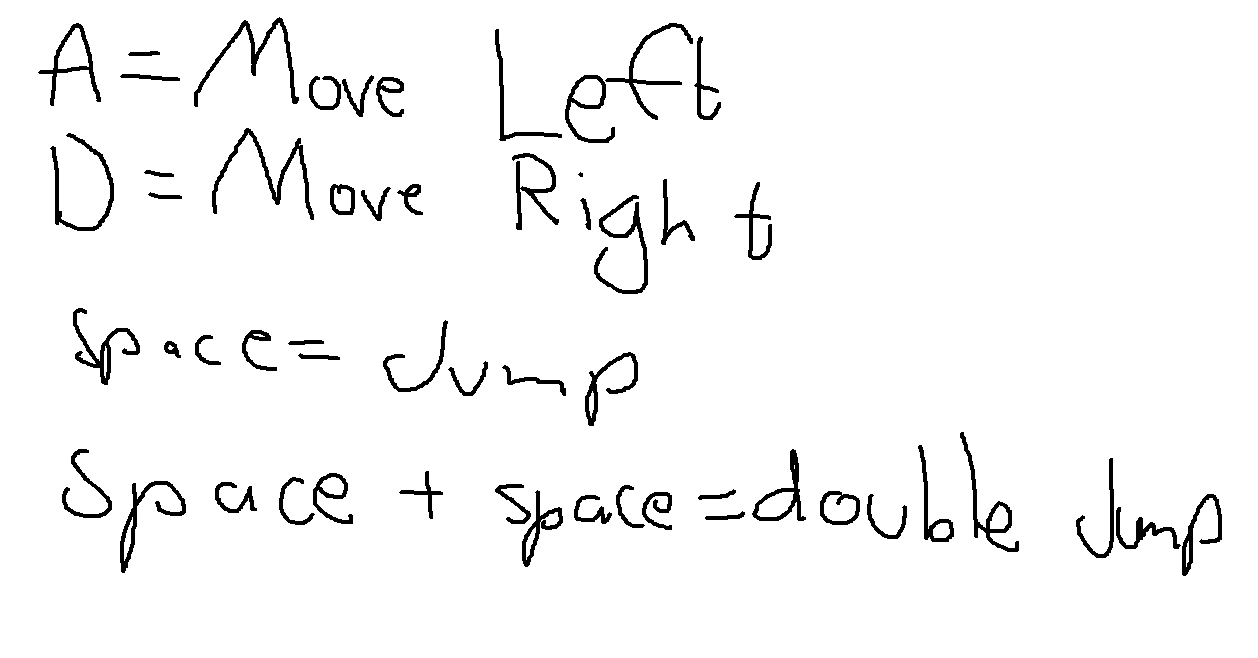 A = Move Left
D = Move Right
space = Jump
Space + space = double Jump